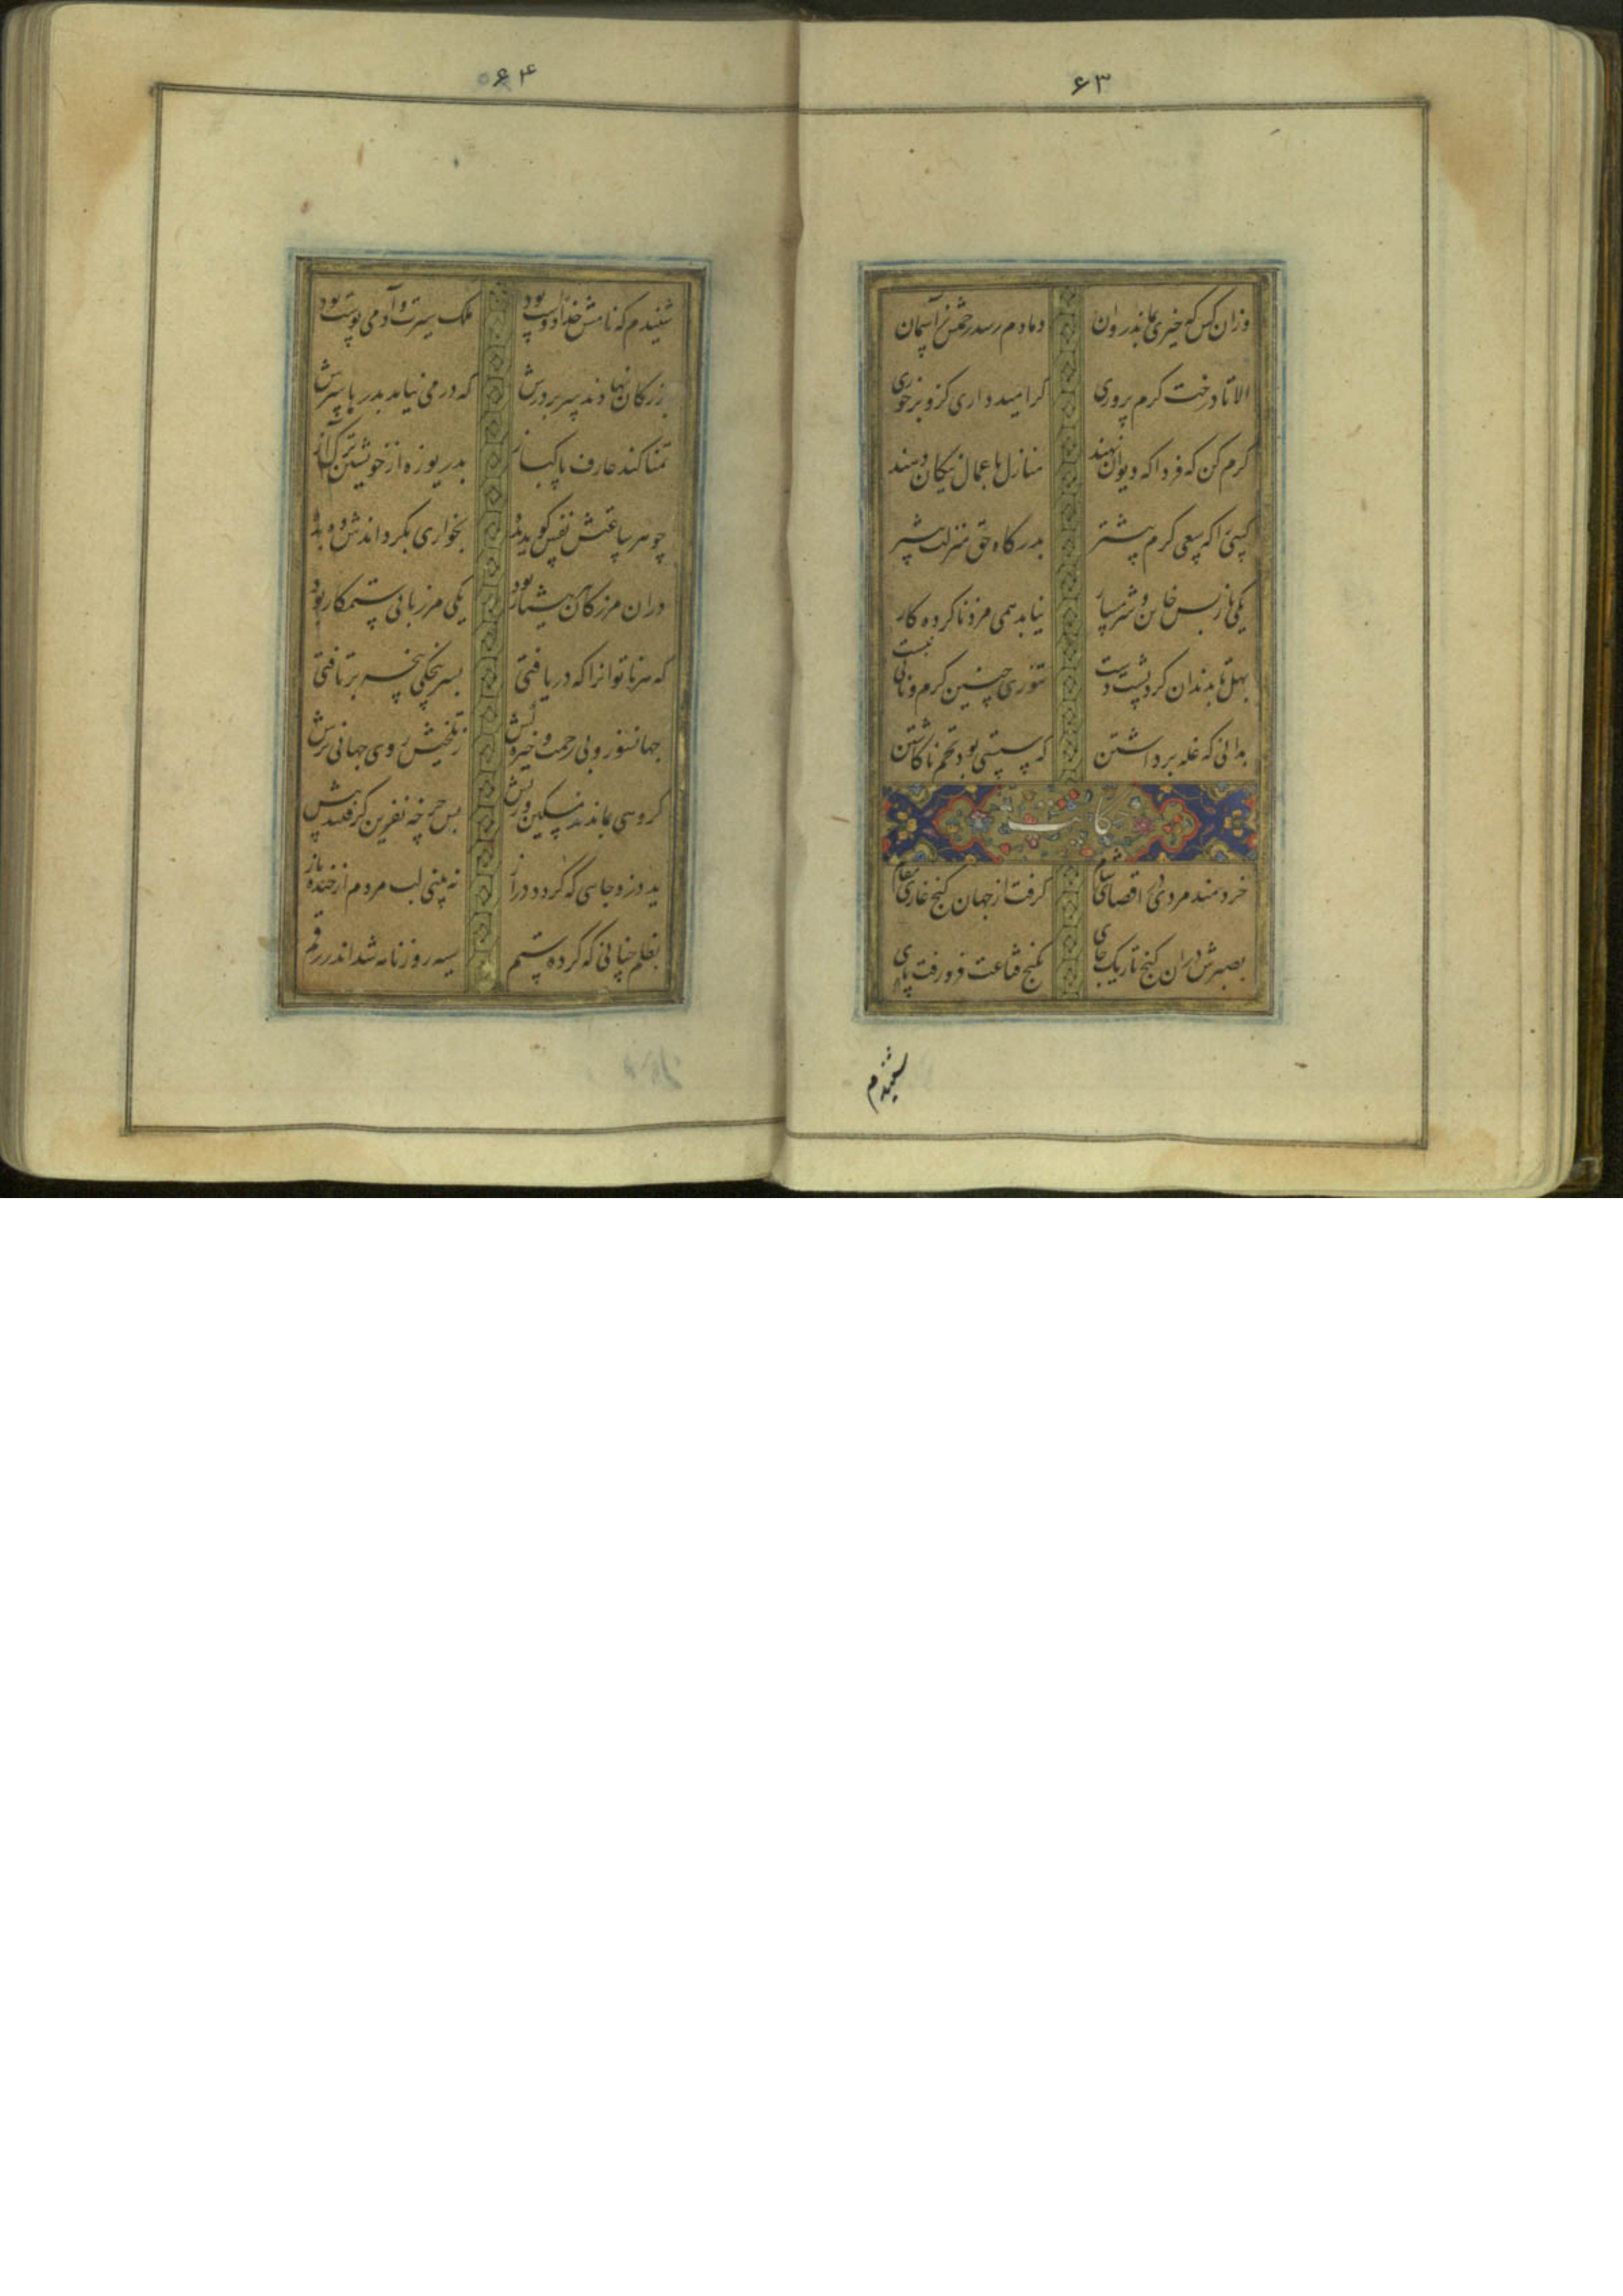 ۶۳
وزان کس که خیری بماند روان دمادم رسد رحمتش ز آسمان
الا تا درخت کرم پروری کر امیدواری کزو برخوری
کرم کن که فردا که دیوان نهند منازل باعمال نیکان دهند
کسی را که سعی کرم پیشتر بدرکاه حق منزلت بیشتر
یکی باز پس خاین و شرمسار نیابد همی مزد ناکرده کار
بهل تا بدندان کرد پشت دست تنوری چنین کرم و نانی نبست
بدانی که غله برداشتن که سستی بود تخم ناکاشتن
حکایت
خردمند مردی در اقصای شام کرفت از جهان کنج غاری مقام
بصبرش دران کنج تاریک جای بکنج قناعت فرو رفت پای
شنیدم
۶۴
شنیدم که نامش خدادوست بود ملک سیرت و آدمی پوست بود
بزرکان نهادند سر بر درش که در می نیامد بدر باسرش
تمنا کند عارف پاکباز بدریوزه از خویشتن ترک آز
چو هر ساعتش نفس کوید بده بخواری بکرداندش ده بده
دران مرز کان هشیار بود یکی مرزبان ستمکار بود
که هر ناتوانرا که دریافتی بسرپنجکی پنجه برتافتی
جهانسوز و بی رحمت و خیره کش ز تلخیش روی جهانی ترش
کروهی بماندند مسکین و ریش پس چرخه نفرین کرفتند پیش
ید ظلم جایی که کردد دراز نه بینی لب مردم از خنده باز
بظلم چنانی که کرده ستم سیه روزنامه شد اندر رقم